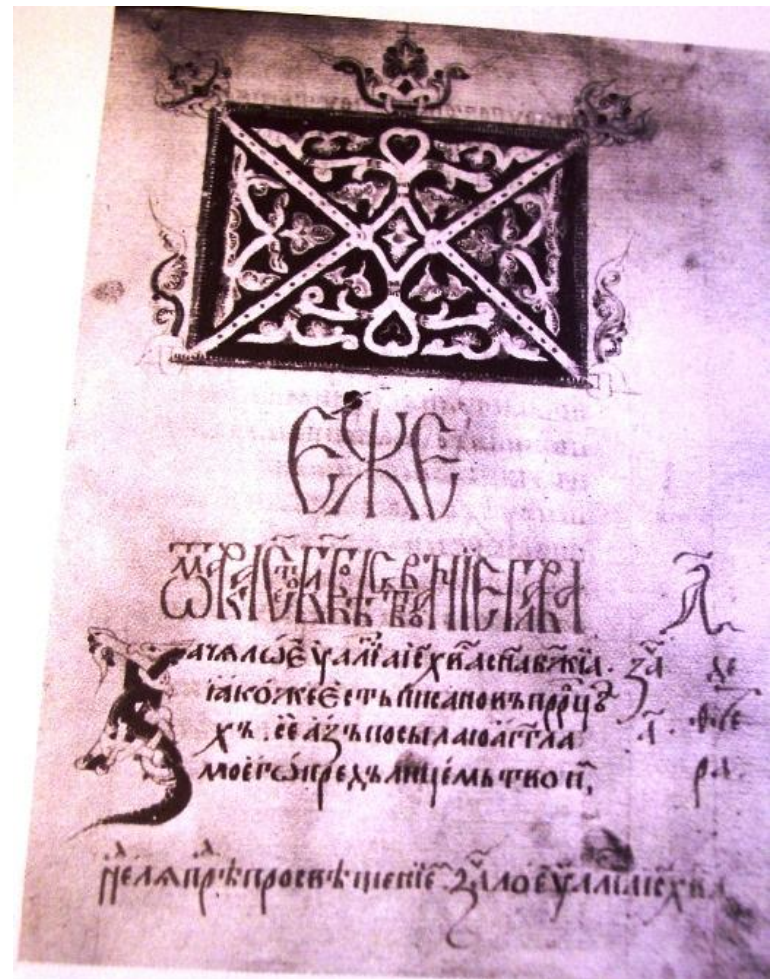 ЕЖЕ
Ѿ МАРКА СТ҃ОЕ БЛ҃ГОВѢСТВОВАНЇЕ ГЛАВА А҃
Зачало еѵⷢ҇алїа і҃с х҃ва сн҃а бж҃їа. за҃
ꙗкоже есть писано въ прⷪ҇рцѣ
хъ. се азъ посылаю аг҃гла а҃.
моего предъ лицемь твои҃,
нⷣелꙗ прⷣѣ просвѣщенїе҃. зачⷧ҇ало еѵⷢ҇алїа і҃с х҃ва